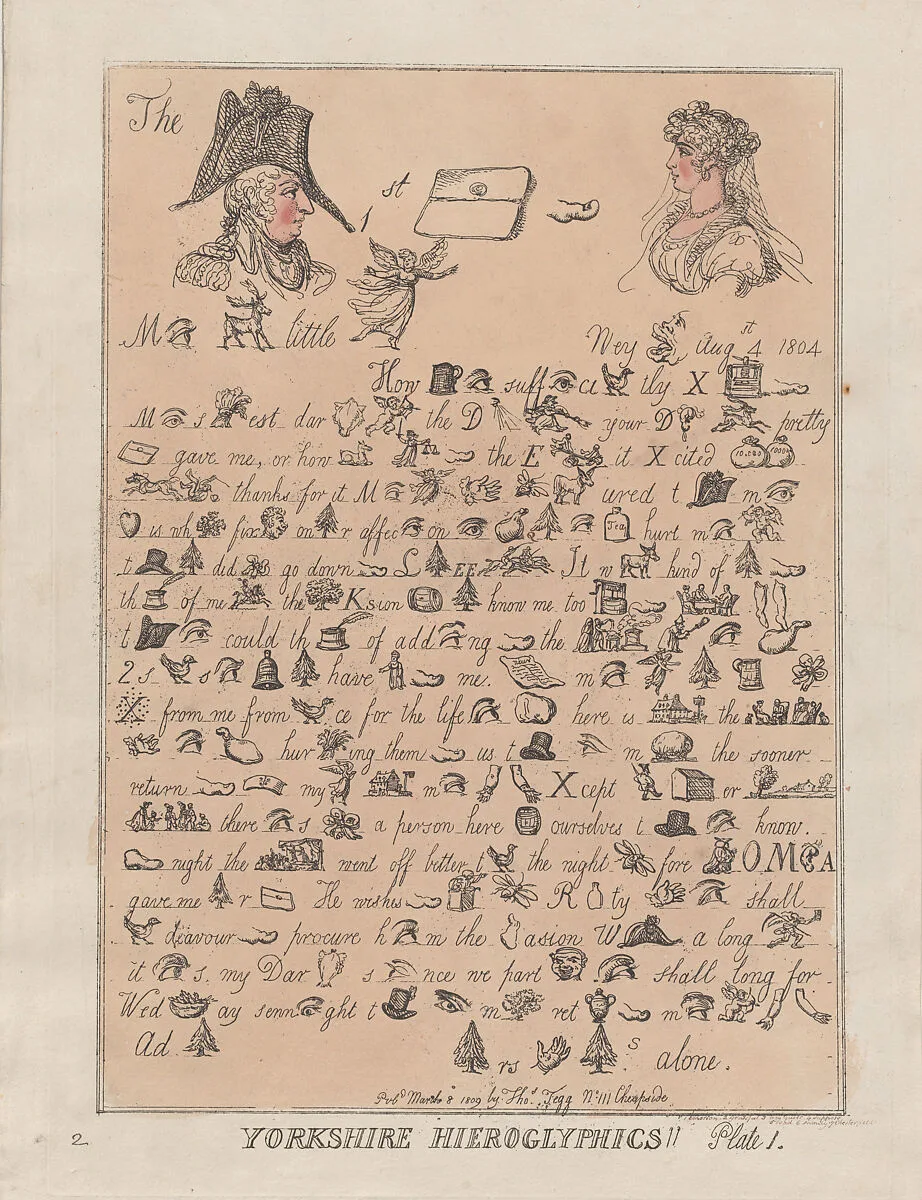 The
1st
M little
Wey Aug st 4 1804
How suff ci tly X
M s est dar the D your D pretty
gave me, or how the E it X cited 10,000
thanks for it M ured t m
is wh fix on r affec on Tea hurt m
t did go down L EE It w kind of
th of me the Ksion know me too
t could th of add ng the
2 s s have me. m
X from me from ce for the life here is the
hur ing them us t m the sooner
return my m Xcept er
there s a person here ourselves t know.
night the went off better t the night fore OM A
gave me r He wishes R ty shall
deavour procure h m the asion W a long
it s my Dar s nce we part shall long for
Wed ay senn ght t m ret m
Ad rs s alone.
Pubd March 8 1809 by Thos Tegg No 111 Cheapside
2 YORKSHIRE HIEROGLYPHICS!! Plate 1.